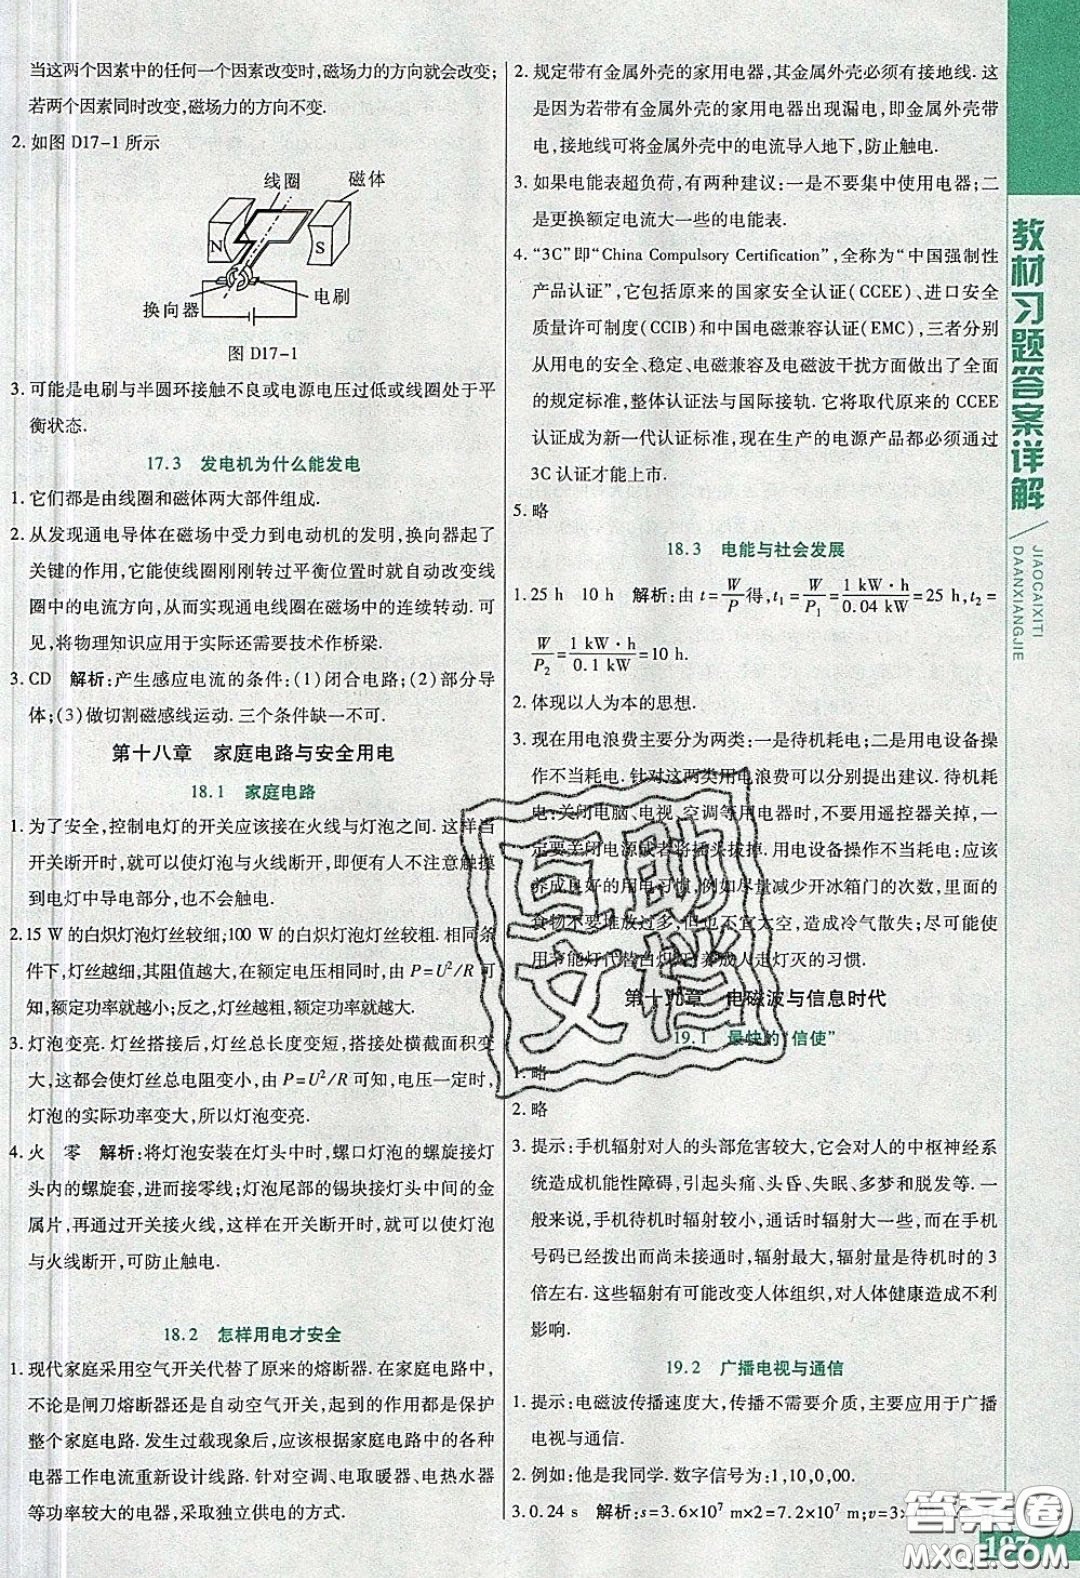 当这两个因素中的任何一个因素改变时,磁场力的方向就会改变;
若两个因素同时改变,磁场力的方向不变.
2. 如图 D17-1 所示
线圈 磁体
N S
换向器 电刷
图 D17-1
3. 可能是电刷与半圆环接触不良或电源电压过低或线圈处于平
衡状态.
17.3 发电机为什么能发电
1. 它们都是由线圈和磁体两大部件组成.
2. 从发现通电导体在磁场中受力到电动机的发明,换向器起了
关键的作用,它能使线圈刚刚转过平衡位置时就自动改变线
圈中的电流方向,从而实现通电线圈在磁场中的连续转动. 可
见,将物理知识应用于实际还需要技术作桥梁.
3. CD 解析:产生感应电流的条件:(1)闭合电路;(2)部分导
体;(3)做切割磁感线运动. 三个条件缺一不可.
第十八章 家庭电路与安全用电
18.1 家庭电路
1. 为了安全,控制电灯的开关应该接在火线与灯泡之间. 这样当
开关断开时,就可以使灯泡与火线断开,即便有人不注意触摸
到电灯中导电部分,也不会触电.
2. 15 W 的白炽灯泡灯丝较细;100 W 的白炽灯泡灯丝较粗. 相同条
件下,灯丝越细,其阻值越大,在额定电压相同时,由 P=U²/R 可
知,额定功率就越小;反之,灯丝越粗,额定功率就越大.
3. 灯泡变亮. 灯丝搭接后,灯丝总长度变短,搭接处横截面积变
大,这都会使灯丝总电阻变小,由 P=U²/R 可知,电压一定时,
灯泡的实际功率变大,所以灯泡变亮.
4. 火 零 解析:将灯泡安装在灯头中时,螺口灯泡的螺旋接灯
头内的螺旋套,进而接零线;灯泡尾部的锡块接灯头中间的金
属片,再通过开关接火线,这样在开关断开时,就可以使灯泡
与火线断开,可防止触电.
18.2 怎样用电才安全
1. 现代家庭采用空气开关代替了原来的熔断器. 在家庭电路中,
不论是闸刀熔断器还是自动空气开关,起到的作用都是保护
整个家庭电路. 发生过载现象后,应该根据家庭电路中的各种
电器工作电流重新设计线路. 针对空调、电取暖器、电热水器
等功率较大的电器,采取独立供电的方式.
2. 规定带有金属外壳的家用电器,其金属外壳必须有接地线. 这
是因为若带有金属外壳的家用电器出现漏电,即金属外壳带
电,接地线可将金属外壳中的电流导入地下,防止触电.
3. 如果电能表超负荷,有两种建议:一是不要集中使用电器;二
是更换额定电流大一些的电能表.
4. “3C”即“China Compulsory Certification”,全称为“中国强制性
产品认证”,它包括原来的国家安全认证(CCEE)、进口安全
质量许可制度(CCIB)和中国电磁兼容认证(EMC),三者分别
从用电的安全、稳定、电磁兼容及电磁波干扰方面做出了全面
的规定标准,整体认证法与国际接轨. 它将取代原来的 CCEE
认证成为新一代认证标准,现在生产的电源产品都必须通过
3C 认证才能上市.
5. 略
18.3 电能与社会发展
1. 25 h 10 h 解析:由 t=W/P 得,t₁=W/P₁=1 kW·h/0.04 kW=25 h,t₂=
W/P₂=1 kW·h/0.1 kW=10 h.
2. 体现以人为本的思想.
3. 现在用电浪费主要分为两类:一是待机耗电;二是用电设备操
作不当耗电. 针对这两类用电浪费可以分别提出建议. 待机耗
电:关闭电脑、电视、空调等用电器时,不要用遥控器关掉,一
定要关闭电源或者将插头拔掉. 用电设备操作不当耗电:应该
养成良好的用电习惯,例如尽量减少开冰箱门的次数,里面的
食物不要堆放过多,但也不宜太空,造成冷气散失;尽可能使
用节能灯代替白炽灯,养成人走灯灭的习惯.
第十九章 电磁波与信息时代
19.1 最快的“信使”
1. 略
2. 略
3. 提示:手机辐射对人的头部危害较大,它会对人的中枢神经系
统造成机能性障碍,引起头痛、头昏、失眠、多梦和脱发等. 一
般来说,手机待机时辐射较小,通话时辐射大一些,而在手机
号码已经拨出而尚未接通时,辐射最大,辐射量是待机时的 3
倍左右. 这些辐射有可能改变人体组织,对人体健康造成不利
影响.
19.2 广播电视与通信
1. 提示:电磁波传播速度大,传播不需要介质,主要应用于广播
电视与通信.
2. 例如:他是我同学. 数字信号为:1,10,0,00.
3. 0.24 s 解析:s=3.6×10⁷ m×2=7.2×10⁷ m;v=3×
教材习题答案详解
JIAOCAIXITI
DAANXIANGJIE
互助
文档
答案圈
MXQE.COM